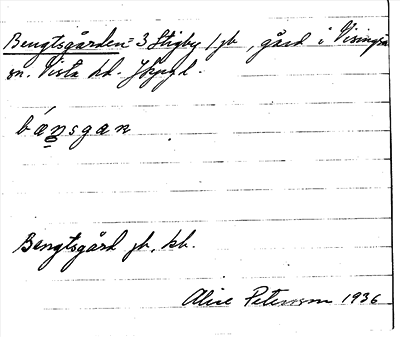 Bengtsgården = 3 Stigby 1 jb, gård i Visingsö
sn. Vista hd. Jkpgl.
bæŋsgan
Bengtsgård jb, kb.
Alice Petersson 1936